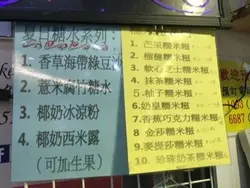 夏日糖水系列:
1. 香草海帶綠豆沙
2. 薏米腐竹糖水
3. 椰奶冰涼粉
4. 椰奶西米露
(可加生果)
1. 芒果糯米糍
2. 榴槤糯米糍
3. 軟心芝士糯米糍
4. 抹茶糯米糍
5. 柚子糯米糍
6. 奶皇糯米糍
7. 香蕉巧克力糯米糍
8. 金莎糯米糍
9. 麥提莎糯米糍
10. 珍珠奶茶糯米糍
6687